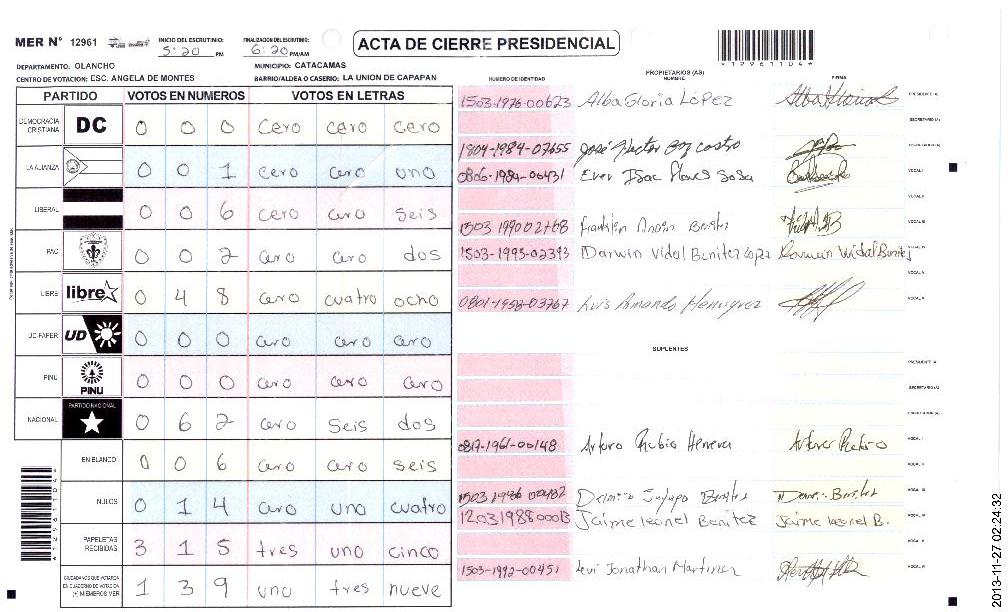 MER N° 12961 INICIO DEL ESCRUTINIO: 5:20 PM FINALIZACION DEL ESCRUTINIO: 6:20 PM/AM
ACTA DE CIERRE PRESIDENCIAL
*129611104*
DEPARTAMENTO: OLANCHO MUNICIPIO: CATACAMAS
CENTRO DE VOTACION: ESC. ANGELA DE MONTES BARRIO/ALDEA O CASERIO: LA UNION DE CAPAPAN
PARTIDO VOTOS EN NUMEROS VOTOS EN LETRAS
DEMOCRACIA CRISTIANA DC 0 0 0 cero cero cero
LA ALIANZA 0 0 1 cero cero uno
LIBERAL 0 0 6 cero cero seis
PAC 0 0 2 cero cero dos
LIBRE libre 0 4 8 cero cuatro ocho
UD-FAPER UD 0 0 0 cero cero cero
PINU PINU 0 0 0 cero cero cero
NACIONAL PARTIDO NACIONAL 0 6 2 cero seis dos
EN BLANCO 0 0 6 cero cero seis
NULOS 0 1 4 cero uno cuatro
PAPELETAS RECIBIDAS 3 1 5 tres uno cinco
CIUDADANOS QUE VOTARON EN CUADERNO DE VOTACION (+) MIEMBROS MER 1 3 9 uno tres nueve
PROPIETARIOS (AS)
NUMERO DE IDENTIDAD NOMBRE FIRMA
1503-1976-00623 Alba Gloria López PRESIDENTE (A)
SECRETARIO (A)
1804-1984-07655 José Hector
0806-1984-00431 Ever Isac Flores Sosa VOCAL I
VOCAL II
1503 1990 02768 Franklin Benites VOCAL III
1503-1993-02393 Darwin Vidal Benitez Lopez Darwin Vidal Benitez VOCAL IV
VOCAL V
0801-1958-03767 Luis Armando Henriquez VOCAL VI
SUPLENTES
PRESIDENTE (A)
SECRETARIO (A)
ESCRUTADOR (A)
0817-1961-00148 Arturo Rubio Herrera Arturo Rubio VOCAL I
VOCAL II
1503 1986 Benites VOCAL III
1203198800013 Jaime leonel Benitez Jaime leonel B. VOCAL IV
VOCAL V
1503-1992-00451 Levi Jonathan Martinez VOCAL VI
2013-11-27 02:24:32